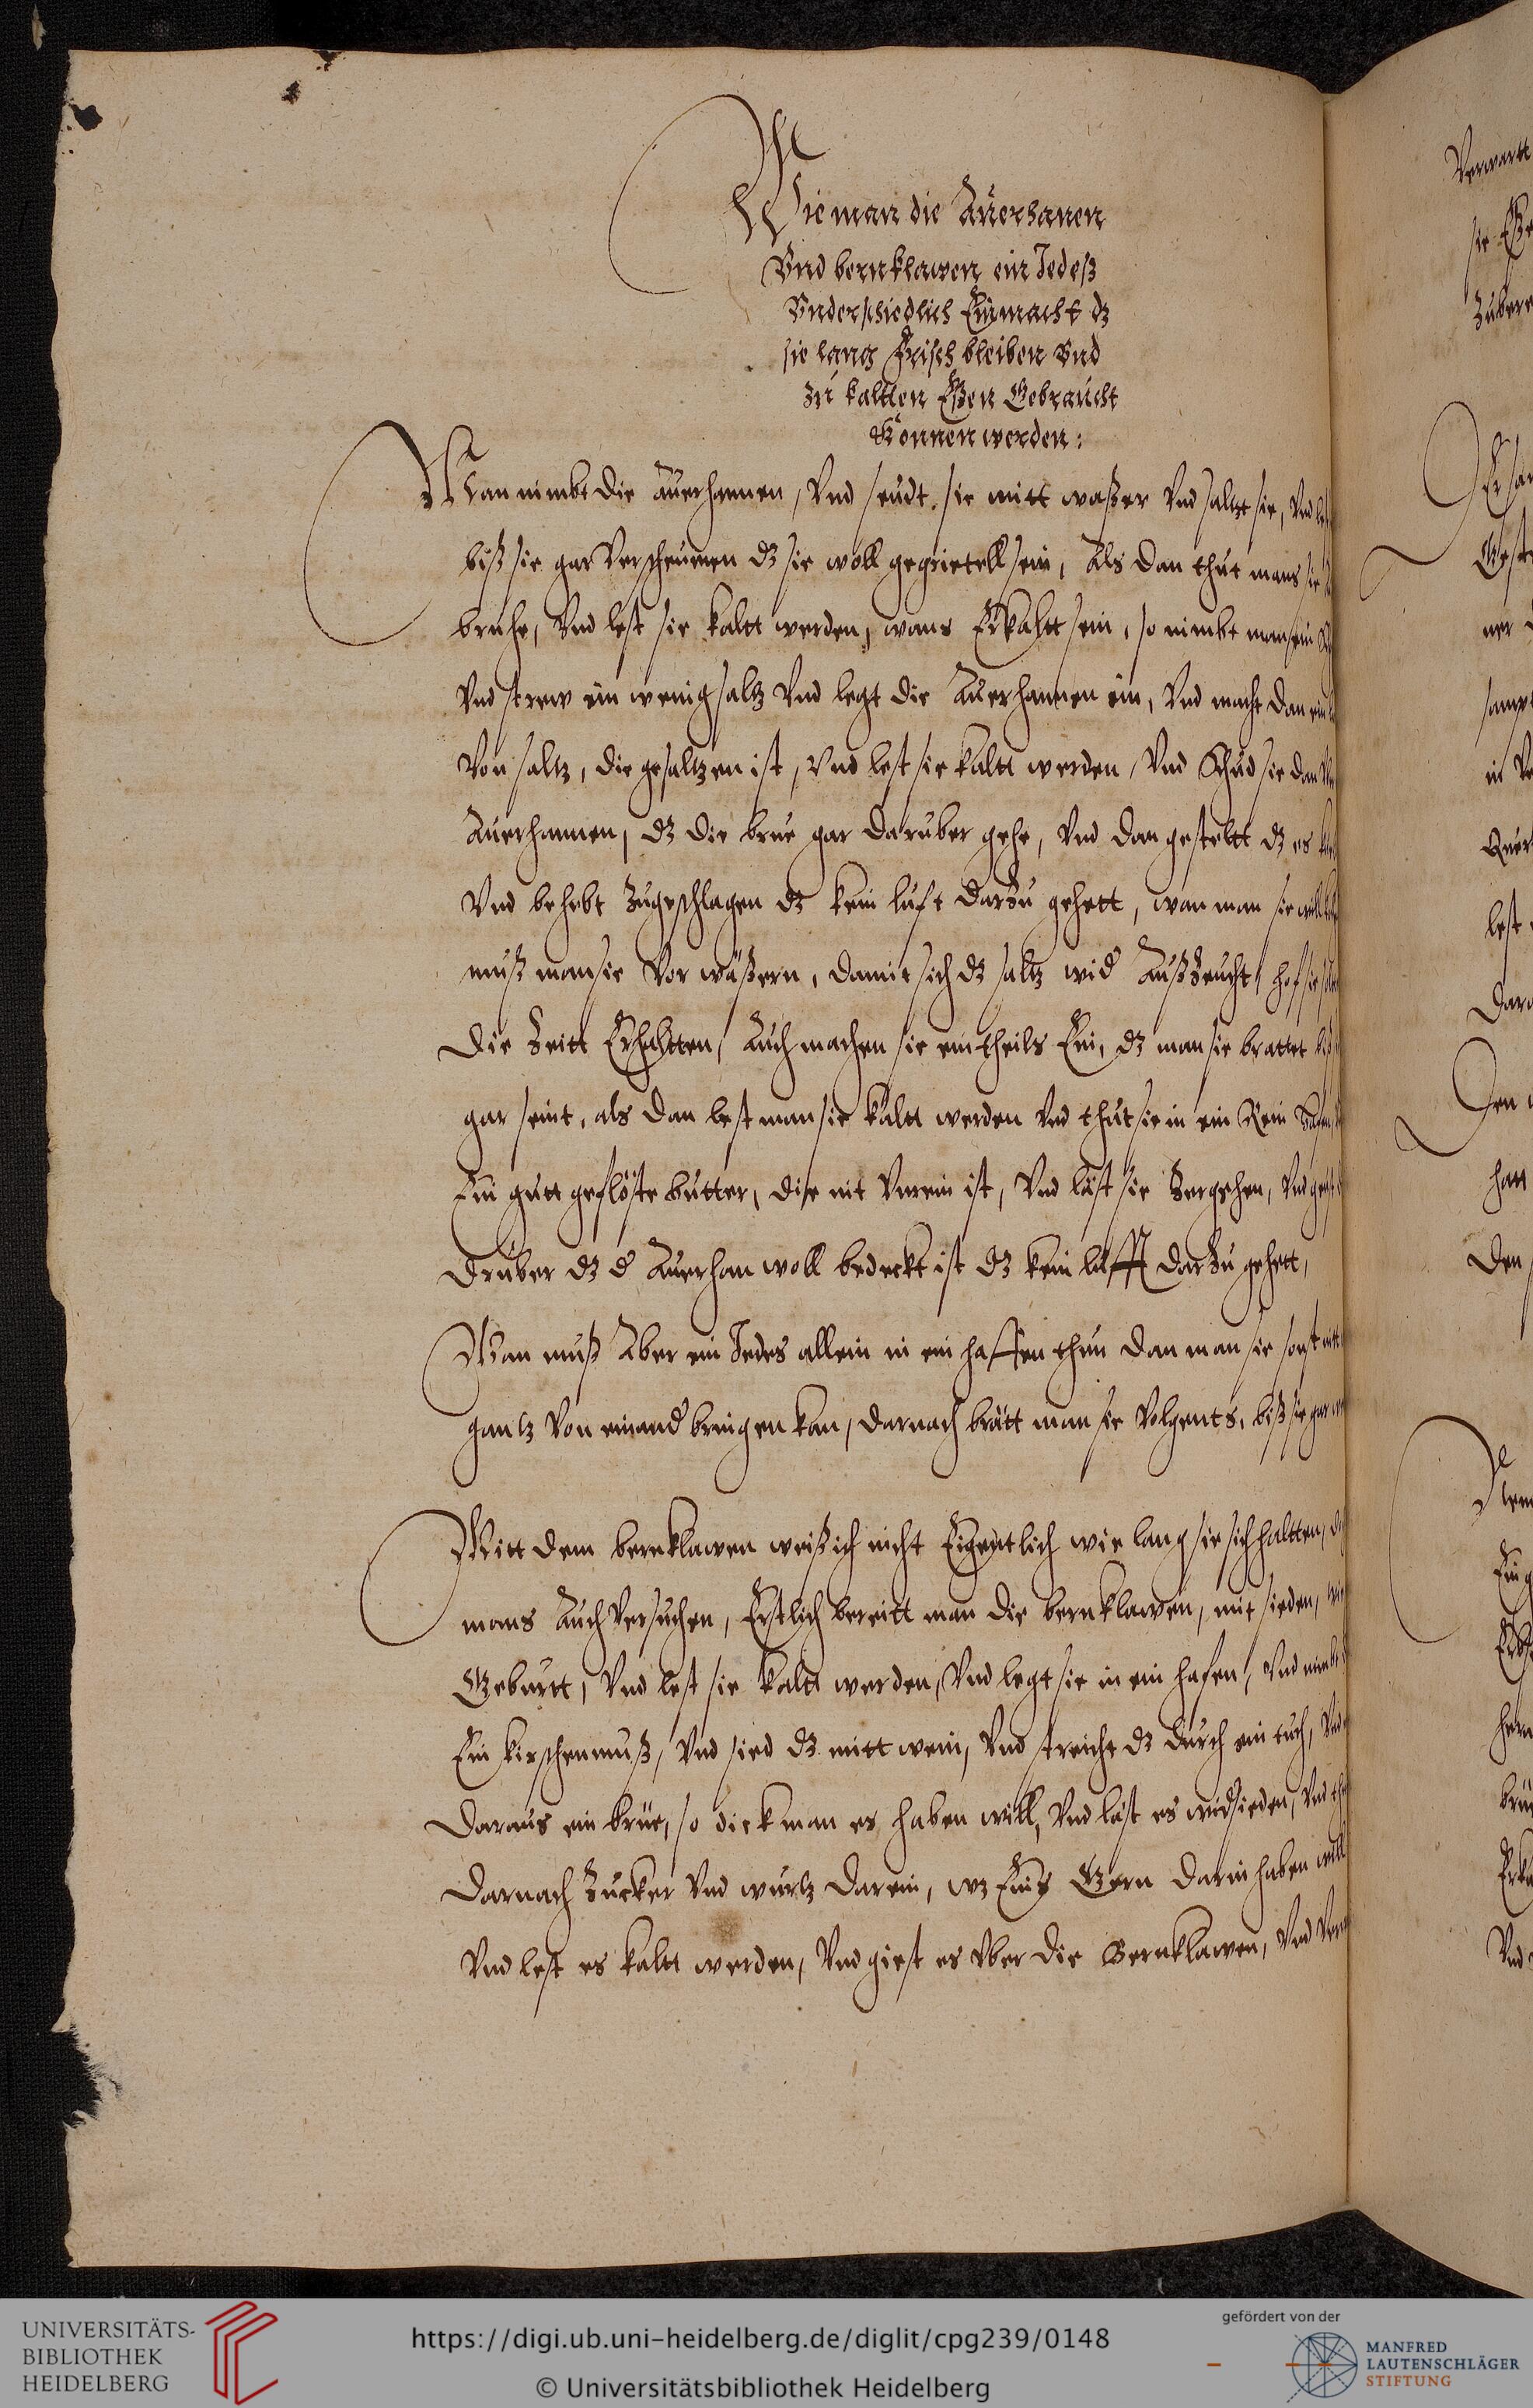 Wie man die Auerhanen
Vnd bernklawen ein Jedeß
Vnderschiedlich Einmacht dz
sie lang Frisch bleiben Vnd
zu kaltten Eßen Gebraucht
Können werden:
Man nimbt die Auerhannen, Vnd seudt sie mitt waßer Vnd saltzt sie, Vnd
biß sie gar Verscheumen dz sie woll sein, Als dan thut mans sie
bruhe, Vnd lest sie kaltt werden, wans Erkaltt sein, so nimbt man ein
Vnd strew ein wenig saltz Vnd legt die Auerhannen ein, Vnd macht dan ein
Von saltz, die gesaltzen ist, Vnd lest sie kaltt werden, Vnd Schud sie dan
Auerhannen, dz die brue gar daruber gehe, Vnd dan gesteltt dz es
Vnd behebt Zugeschlagen dz kein luft darzu gehett, wan man sie will
muß man sie Vor wäßern, damit sich dz saltz wid Außzeucht,
die Zeitt Erhaltten, Auch machen sie eintheils Ein, dz man sie brattet
gar seint, als dan lest man sie kaltt werden Vnd thut sie in ein Rein
Ein gutt geflöste butter, dise nit Vnrein ist, Vnd läst sie Zergehen, Vnd
drüber dz d Auerhan woll bedeckt ist dz kein lufft darzu gehett,
Man muß Aber ein Jedes allein in ein haffen thun dan man sie sonst nitt
gantz Von einand bringen kan, darnach brätt man sie Volgents, biß sie gar
Mitt dem bernklawen weiß ich nicht Eigentlich wie lang sie sich haltten,
mans Auch Versuchen, Erstlich bereitt man die bernklawen, mit sieden, wie
Geburtt, Vnd lest sie kaltt werden, Vnd legt sie in ein hafen, Vnd nimbt
Ein kirschenmuß, Vnd sied dz mitt wein, Vnd streicht dz durch ein tuch, Vnd
daraus ein brüe, so dick man es haben will, Vnd läst es widsieden, Vnd
darnach Zucker Vnd würtz darein, wz Eins Gern darin haben will
Vnd lest es kaltt werden, Vnd giest es Vber die Bernklawen, Vnd
Verwartt
sie
Zuber
ner
in
lest
Den
hatt
den
Ein
Vnd
UNIVERSITÄTS-
BIBLIOTHEK
HEIDELBERG
https://digi.ub.uni-heidelberg.de/diglit/cpg239/0148
© Universitätsbibliothek Heidelberg
gefördert von der
MANFRED
LAUTENSCHLÄGER
STIFTUNG